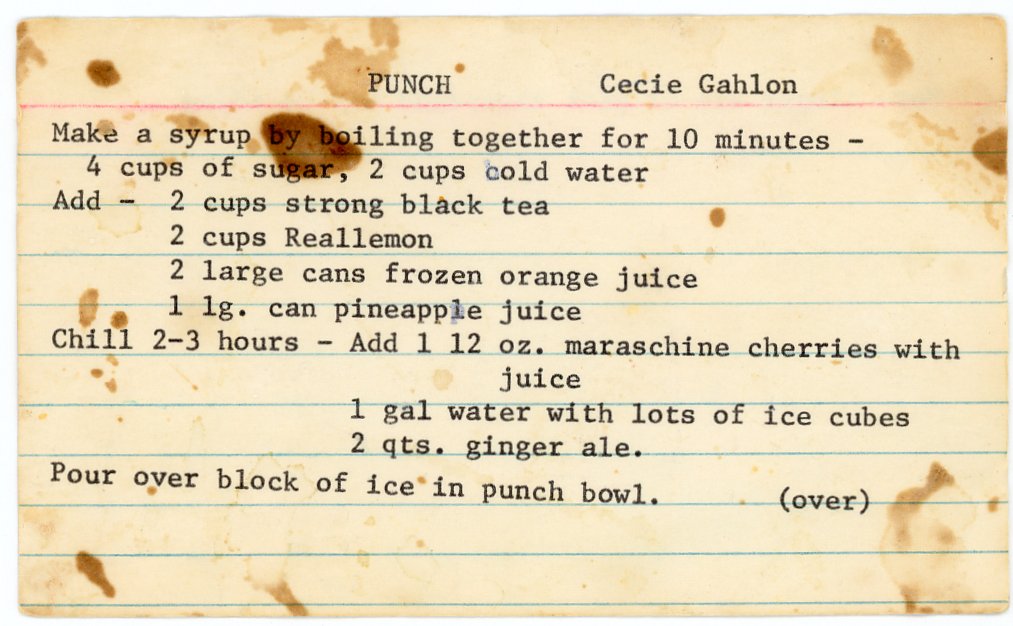 PUNCH Cecie Gahlon
Make a syrup by boiling together for 10 minutes -
4 cups of sugar, 2 cups cold water
Add - 2 cups strong black tea
2 cups Reallemon
2 large cans frozen orange juice
1 lg. can pineapple juice
Chill 2-3 hours - Add 1 12 oz. maraschine cherries with
juice
1 gal water with lots of ice cubes
2 qts. ginger ale.
Pour over block of ice in punch bowl. (over)